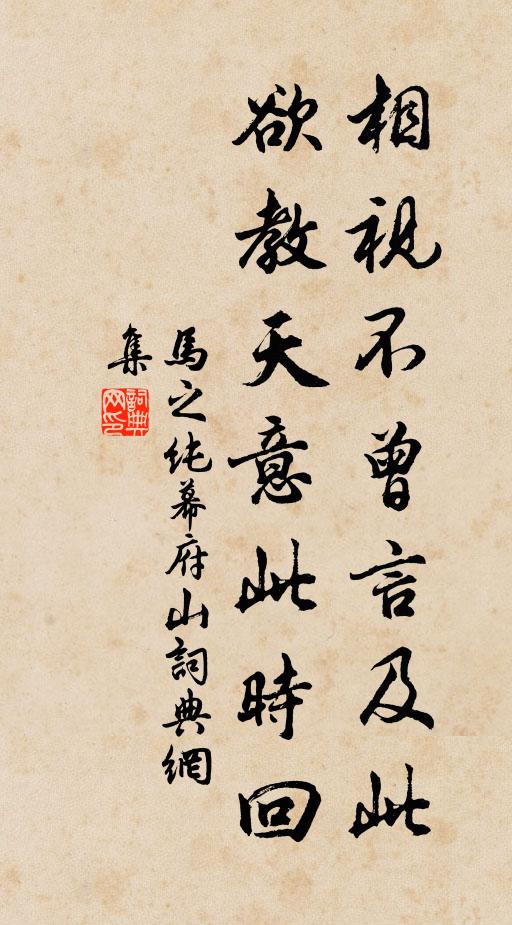 相視不曾言及此
欲教天意此時回
馬之純幕府山詞典網
集
詞典網印